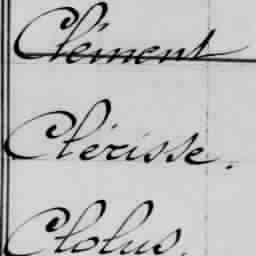 Clément
Clérisse.
Clolus.